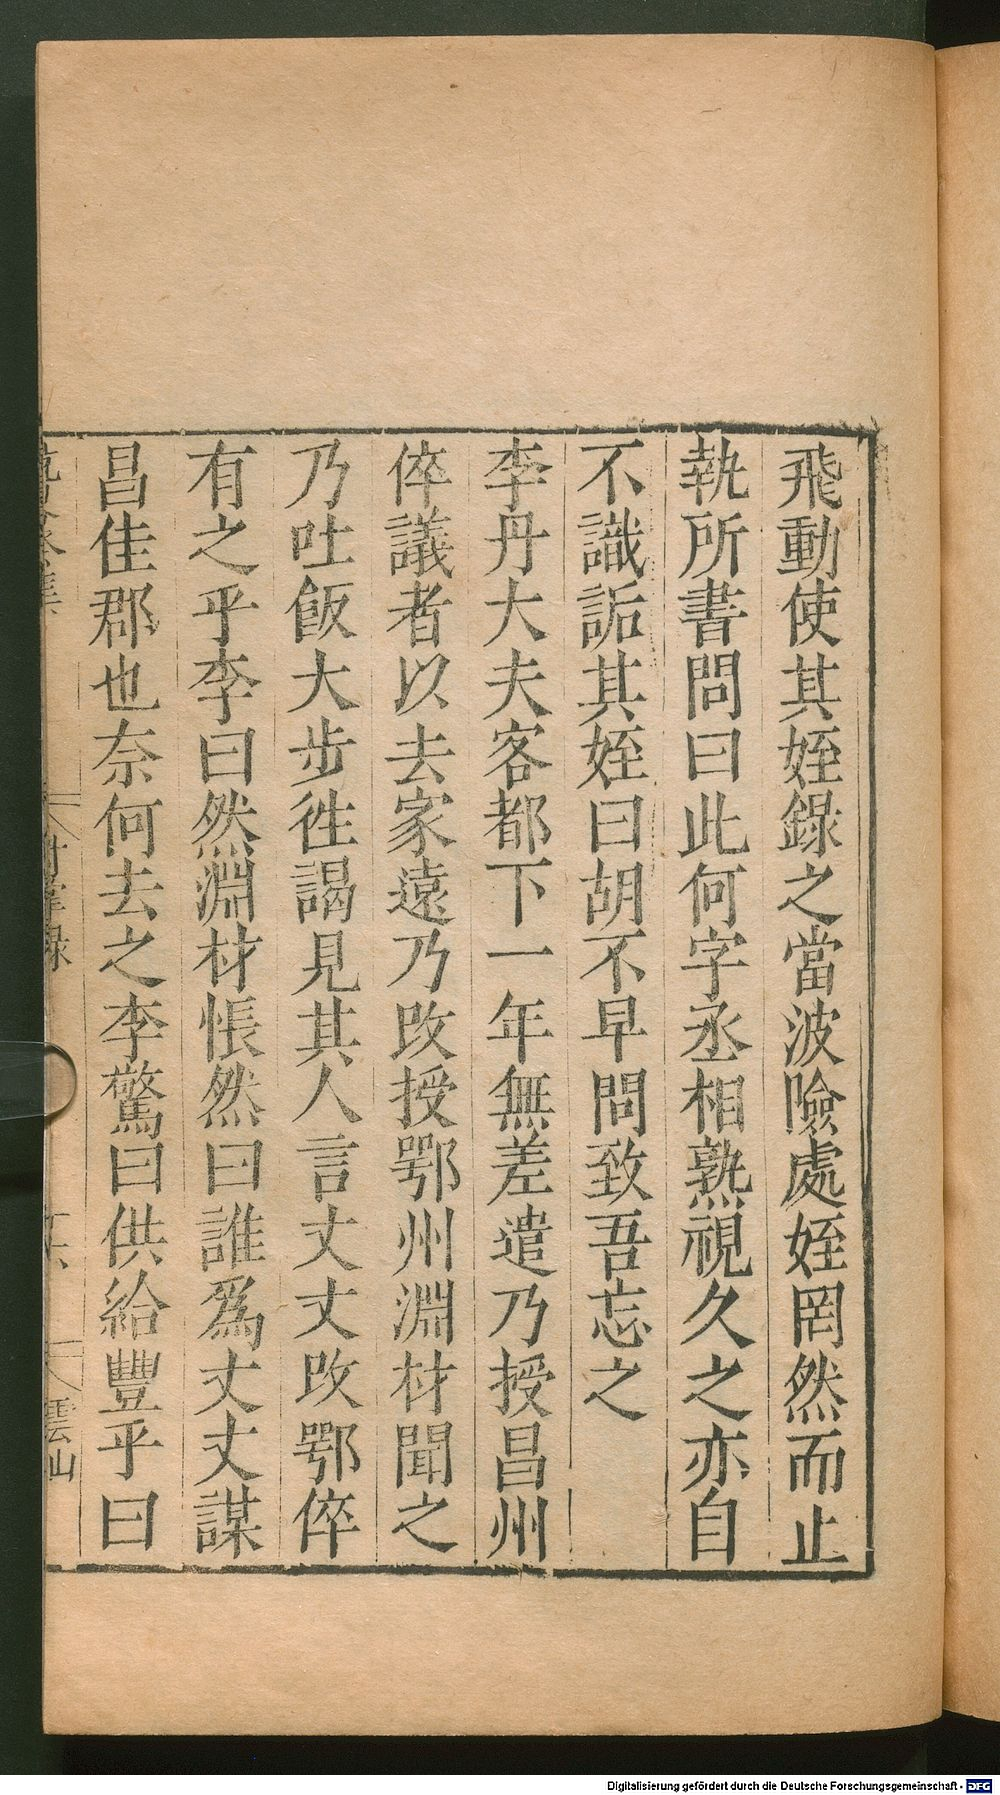 飛動使其姪錄之當波險處姪罔然而止
執所書問曰此何字丞相熟視久之亦自
不識詬其姪曰胡不早問致吾忘之
李丹大夫客都下一年無差遣乃授昌州
倅議者以去家遠乃改授鄂州淵材聞之
乃吐飯大步徃謁見其人言丈丈改鄂倅
有之乎李曰然淵材悵然曰誰爲丈丈謀
昌佳郡也奈何去之李驚曰供給豐乎曰
雲山
Digitalisierung gefördert durch die Deutsche Forschungsgemeinschaft - DFG